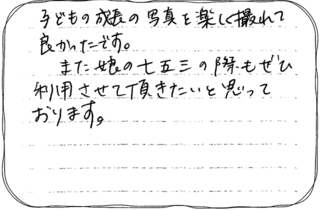 子どもの成長の写真を楽しく撮れて
良かったです。
また娘の七五三の際もぜひ
利用させて頂きたいと思って
おります。